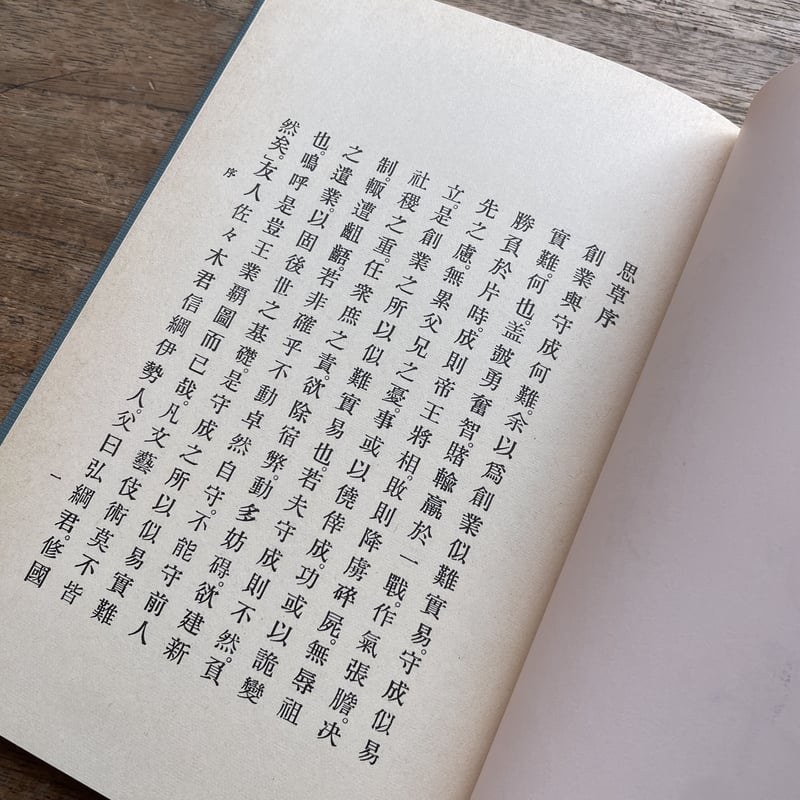 思草序
創業與守成何難。余以爲創業似難實易。守成似易
實難。何也。盖皷勇奮智。賭輸贏於一戰。作氣張膽。决
勝負於片時。成則帝王將相。敗則降虜碎屍。無辱祖
先之慮。無累父兄之憂。事或以僥倖成。功或以詭變
立。是創業之所以似難實易也。若夫守成則不然。負
社稷之重任衆庶之責。欲除宿弊。動多妨碍。欲建新
制。輙遭齟齬。若非確乎不動卓然自守。不能守前人
之遺業。以固後世之基礎。是守成之所以似易實難
也。嗚呼是豈王業覇圖而已哉。凡文藝伎術莫不皆
然矣。」友人佐々木君信綱伊勢人。父曰弘綱君。修國
序
一